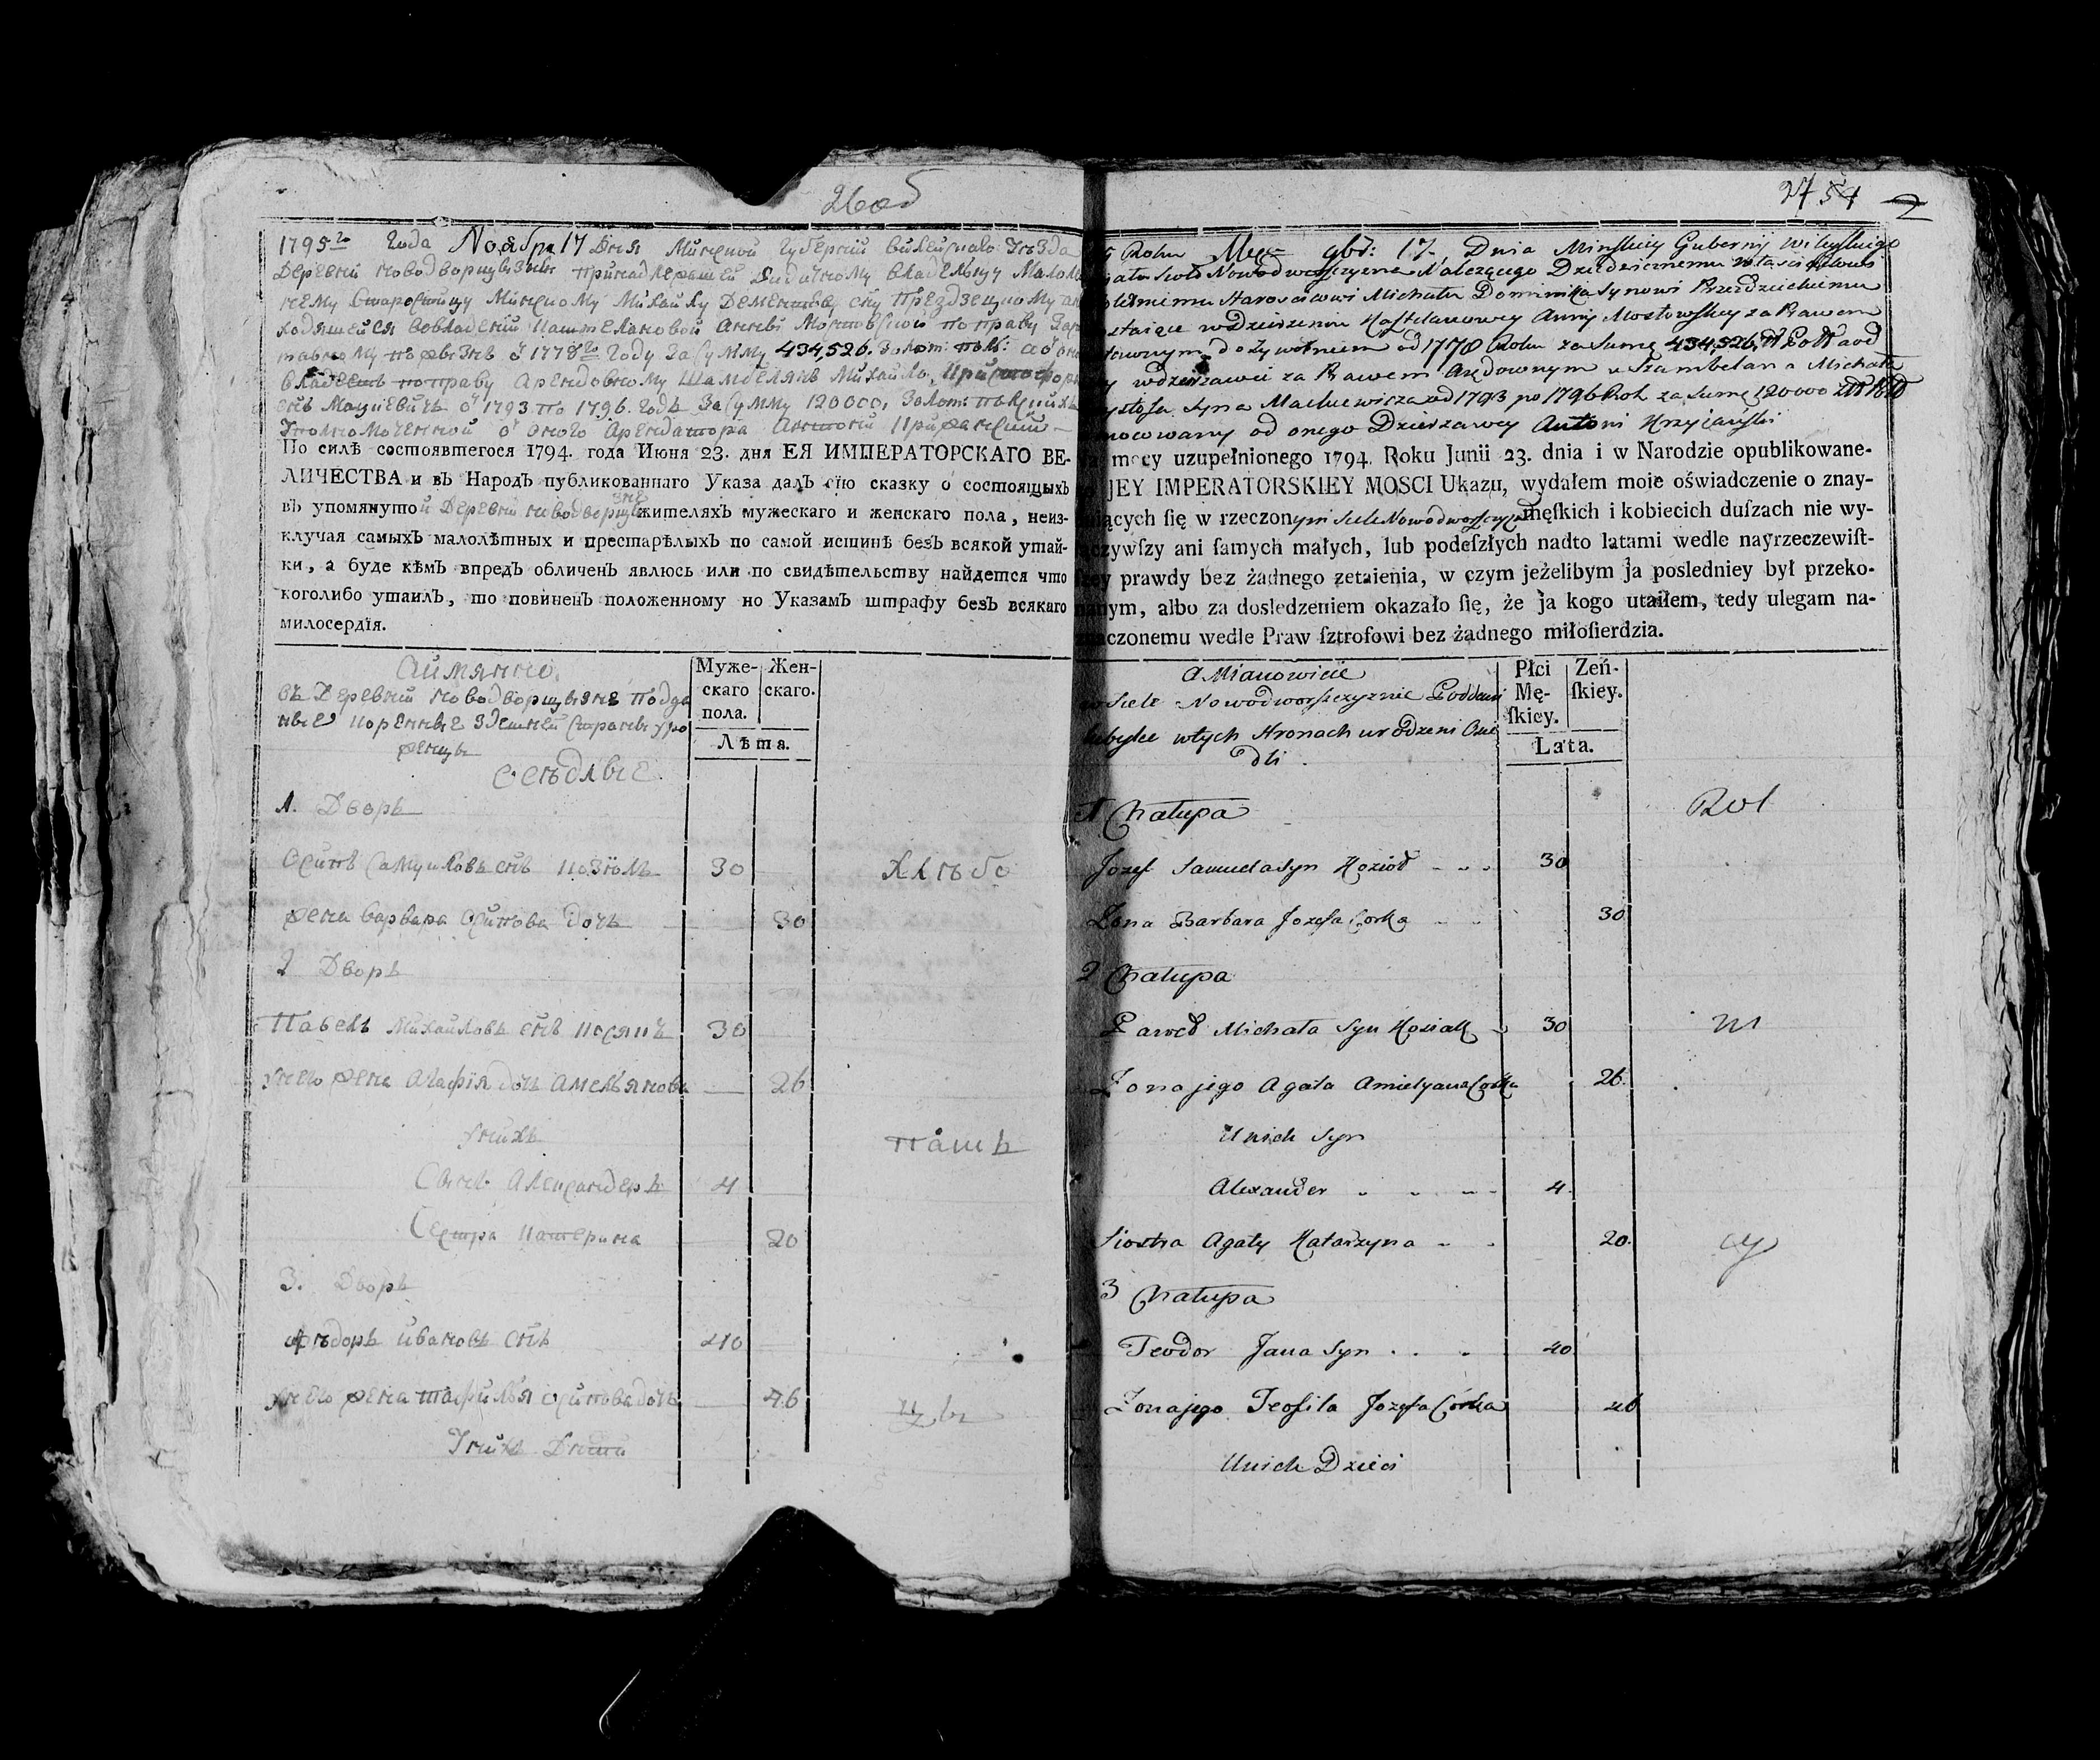 26об
1795го года Ноября 17 Дня Минской Губернiи Вилейскаго уезда
Деревни Новодворщизны принадлежащей владельцу
Старостицу Минскому Михайлу
Каштеляновой Анны Мостовской по праву
1778го году За Сумму 434,526. Золот: пол:
владеетъ по праву Арендовному Шамбелянъ Михайло
снъ Мацкевичъ 1793 по 1796. годъ За Сумму 120000, Золот: польскихъ
оного Арендатора Антонiй
По силѣ состоявтегося 1794. года Июня 23. дня ЕЯ ИМПЕРАТОРСКАГО ВЕ-
ЛИЧЕСТВА и въ Народъ публикованнаго Указа далъ сїю сказку о состоящыхъ
въ упомянутой Деревни жителяхъ мужескаго и женскаго пола, неиз-
ключая самыхъ малолѣтных и престарѣлыхъ по самой истинѣ безъ всякой утай-
ки, а буде кѣмъ впредъ обличенъ явлюсь или по свидѣтельству найдется что
коголибо утаилъ, то повиненъ положенному но Указамъ штрафу безъ всякаго
милосердїя.
Муже-
скаго
пола.
Жен-
скаго.
Лѣта.
въ Деревни
Оселые
1. Дворъ
Осипъ Самуиловъ снъ Козiолъ 30
Хлебо
жена Варвара Осипова дочь 30
2 Дворъ
Павелъ Михайловъ снъ Косякъ 30
у него жена Агафiя дочь Амельянова 26
у нихъ
пашъ
Сынъ Александеръ 4
Сестра Катерина 20
3. Дворъ
Федоръ Ивановъ снъ 40
у него жена Осипова дочь 46
цы
у нихъ Дети
27 54 2
Roku 9br: 17 Dnia Minskiey Gubernij Wileyskiego
Sioło Nowodworszczyzna Należącego Dziedzicznemu
Starościcowi Michału Dominika Synowi Przezdzieckiemu
w Dzierżeniu Kasztelanowey Anny Mostowskiey za Prawem
dożywotniem od 1778 Roku za Sumę 434,526,
za Prawem Arędownym u Szambelana Michała
Syna Mackiewicza od 1793 po 1796 Rok za Sumę 120000
od onego Dzierżawcy Antoni
mocy uzupełnionego 1794. Roku Junii 23. dnia i w Narodzie opublikowane-
JEY IMPERATORSKIEY MOSCI Ukazu, wydałem moie oświadczenie o znay-
ących ſię w rzeczonym Siele Nowodworszczyznie męſkich i kobiecich duſzach nie wy-
zywſzy ani ſamych małych, lub podeſzłych nadto latami wedle nayrzeczewiſt-
prawdy bez żadnego zetaienia, w czym jeżelibym ja posledniey był przeko-
nanym, albo za dosledzeniem okazało ſię, że ja kogo utaiłem, tedy ulegam na-
znaczonemu wedle Praw ſztrofowi bez żądnego miłoſierdzia.
a Mianowicie
w Siele Nowodworszczyznie Poddani
w tych Stronach urodzeni Osie
dli
Płci
Mę-
ſkiey.
Zeń-
ſkiey.
Lata.
1 Chałupa
Rol
Jozef Samuela Syn Kozioł 30
Żona Barbara Jozefa Corka 30
2 Chałupa
Paweł Michała Syn Kosiak 30
ni
Żona jego Agata Amielyana Corka 26.
U nich Syn
Alexander 4.
Siostra Agaty Katarzyna 20.
cy
3 Chałupa
Teodor Jana Syn 40
Żona jego Teofila Jozefa Corka 46
U nich Dzieci